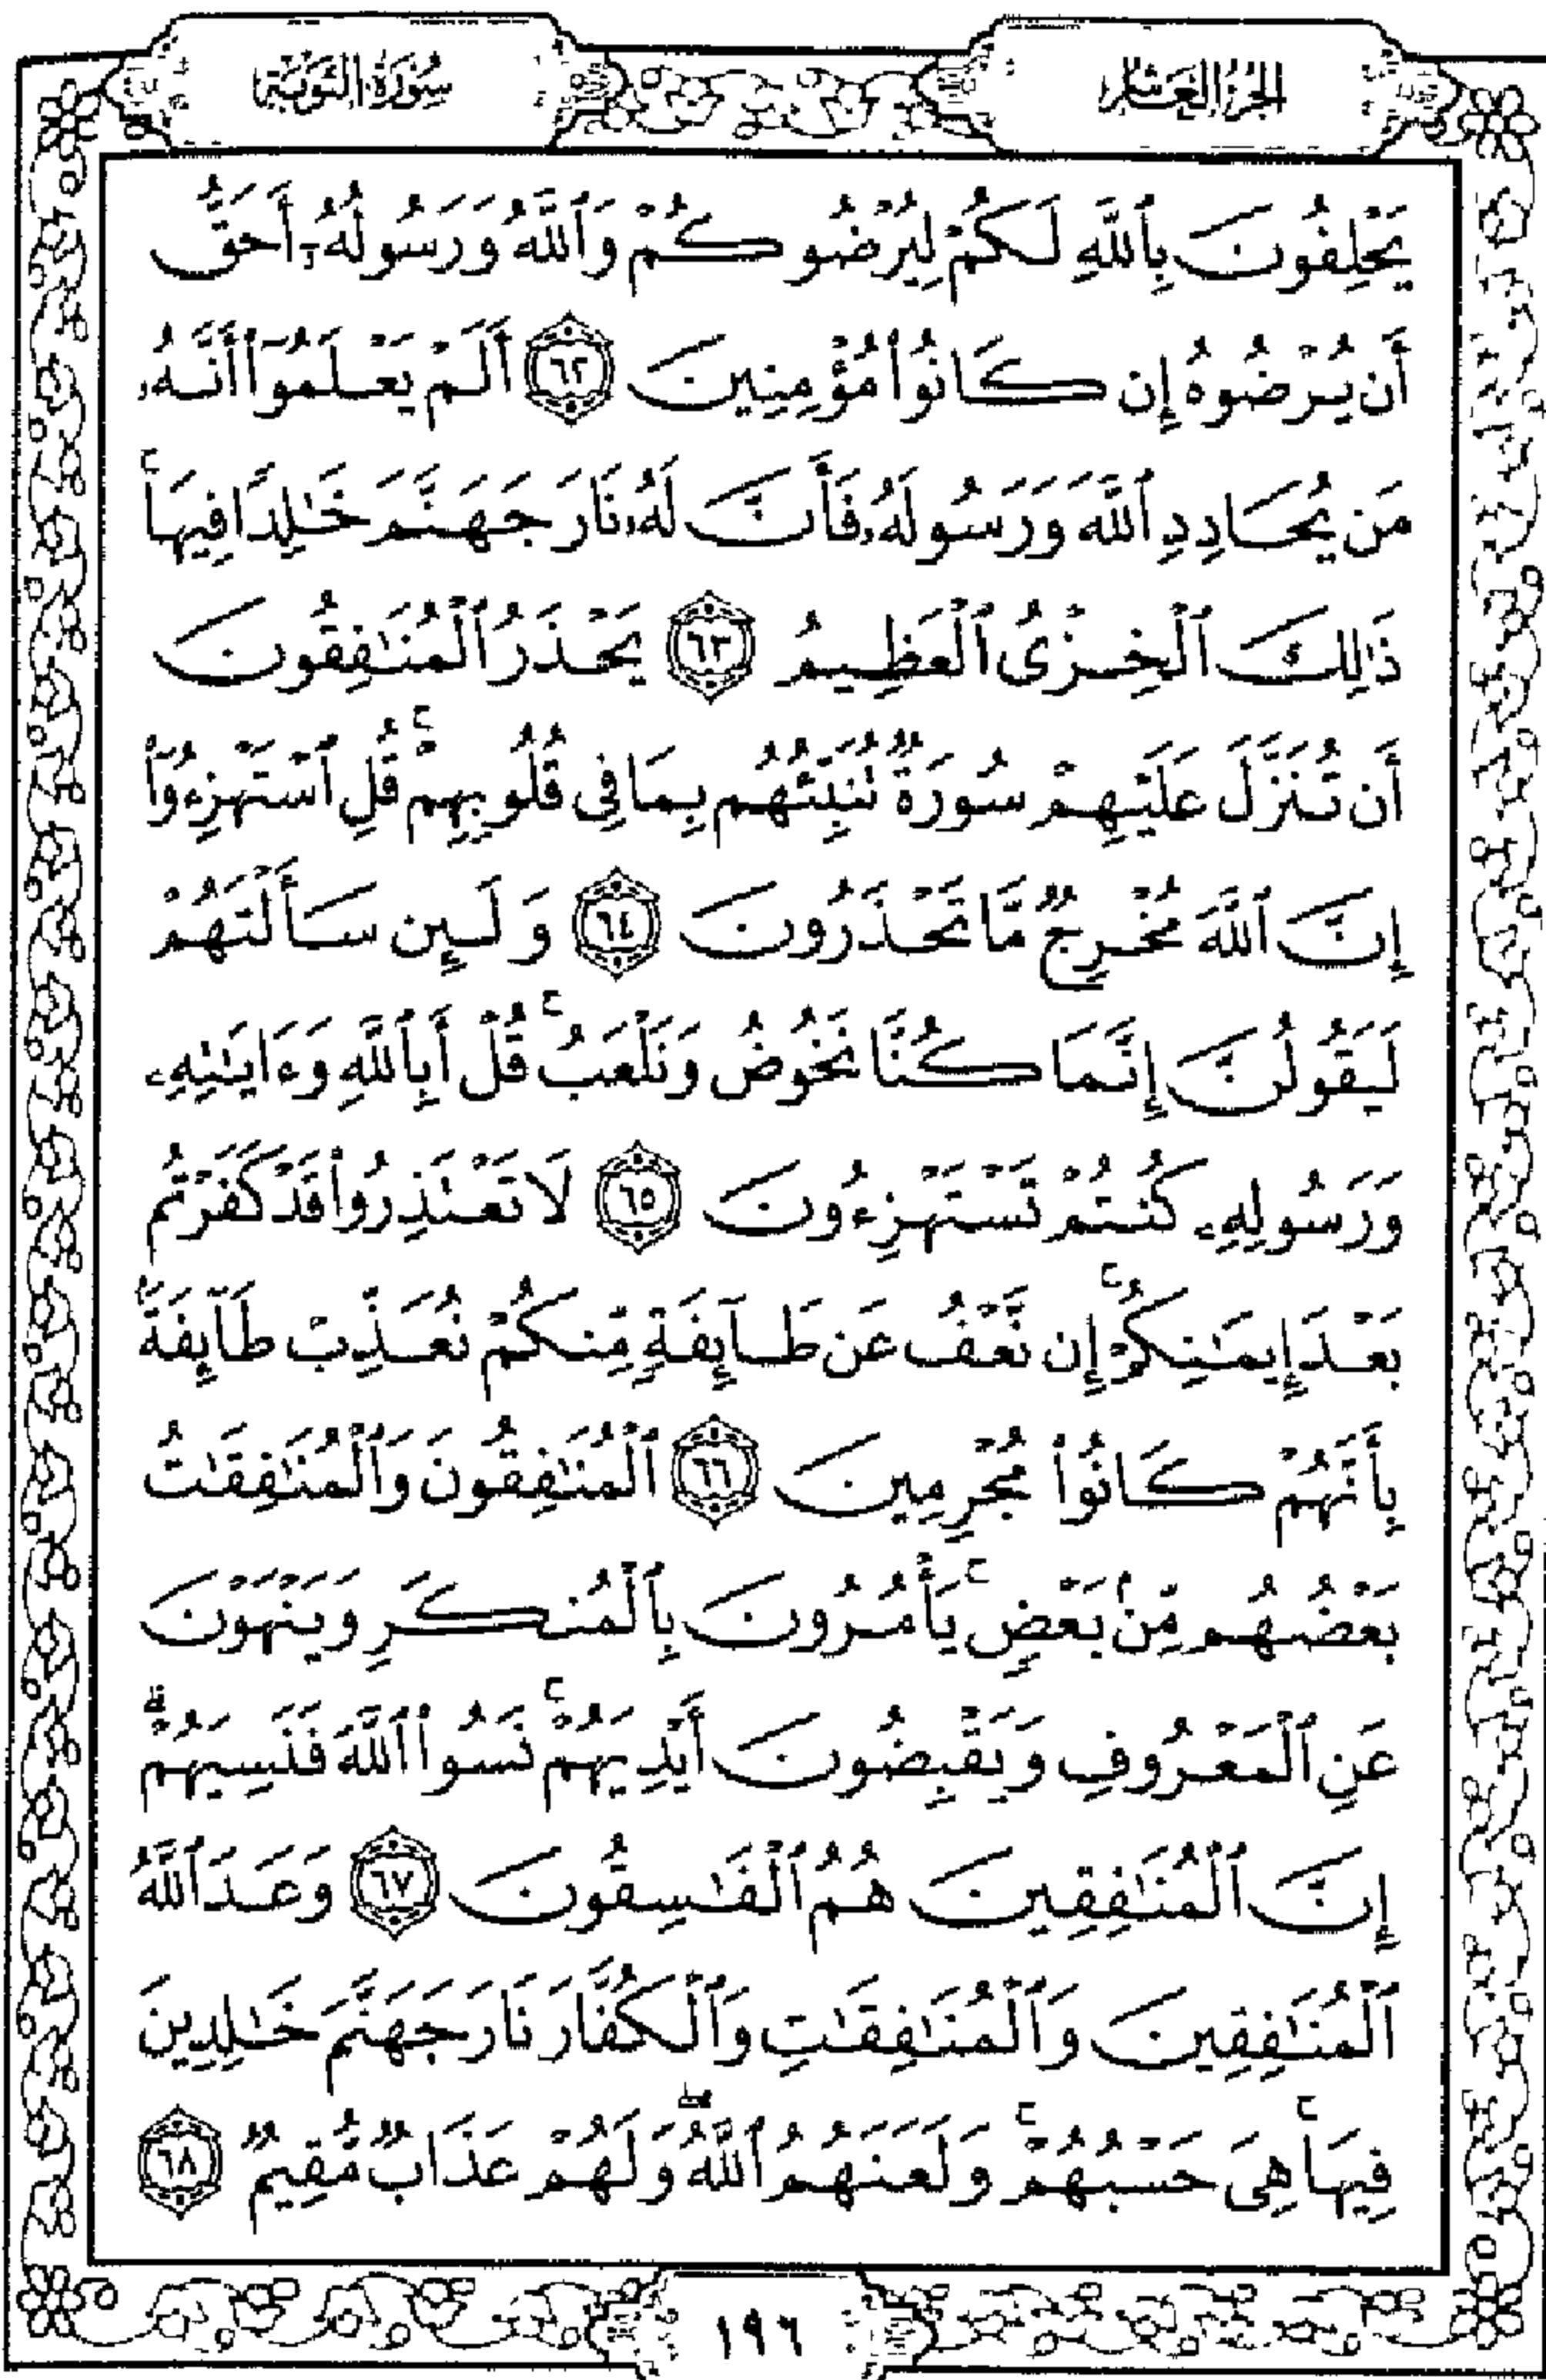 الجزء العاشر
سورة التوبة
يَحْلِفُونَ بِٱللَّهِ لَكُمْ لِيُرْضُوكُمْ وَٱللَّهُ وَرَسُولُهُۥٓ أَحَقُّ
أَن يُرْضُوهُ إِن كَانُوا۟ مُؤْمِنِينَ ٦٢ أَلَمْ يَعْلَمُوٓا۟ أَنَّهُۥ
مَن يُحَادِدِ ٱللَّهَ وَرَسُولَهُۥ فَأَنَّ لَهُۥ نَارَ جَهَنَّمَ خَٰلِدًا فِيهَا ۚ
ذَٰلِكَ ٱلْخِزْىُ ٱلْعَظِيمُ ٦٣ يَحْذَرُ ٱلْمُنَٰفِقُونَ
أَن تُنَزَّلَ عَلَيْهِمْ سُورَةٌ تُنَبِّئُهُم بِمَا فِى قُلُوبِهِمْ ۚ قُلِ ٱسْتَهْزِءُوٓا۟
إِنَّ ٱللَّهَ مُخْرِجٌ مَّا تَحْذَرُونَ ٦٤ وَلَئِن سَأَلْتَهُمْ
لَيَقُولُنَّ إِنَّمَا كُنَّا نَخُوضُ وَنَلْعَبُ ۚ قُلْ أَبِٱللَّهِ وَءَايَٰتِهِۦ
وَرَسُولِهِۦ كُنتُمْ تَسْتَهْزِءُونَ ٦٥ لَا تَعْتَذِرُوا۟ قَدْ كَفَرْتُم
بَعْدَ إِيمَٰنِكُمْ ۚ إِن نَّعْفُ عَن طَآئِفَةٍ مِّنكُمْ نُعَذِّبْ طَآئِفَةًۢ
بِأَنَّهُمْ كَانُوا۟ مُجْرِمِينَ ٦٦ ٱلْمُنَٰفِقُونَ وَٱلْمُنَٰفِقَٰتُ
بَعْضُهُم مِّنۢ بَعْضٍ ۚ يَأْمُرُونَ بِٱلْمُنكَرِ وَيَنْهَوْنَ
عَنِ ٱلْمَعْرُوفِ وَيَقْبِضُونَ أَيْدِيَهُمْ ۚ نَسُوا۟ ٱللَّهَ فَنَسِيَهُمْ ۗ
إِنَّ ٱلْمُنَٰفِقِينَ هُمُ ٱلْفَٰسِقُونَ ٦٧ وَعَدَ ٱللَّهُ
ٱلْمُنَٰفِقِينَ وَٱلْمُنَٰفِقَٰتِ وَٱلْكُفَّارَ نَارَ جَهَنَّمَ خَٰلِدِينَ
فِيهَا ۚ هِىَ حَسْبُهُمْ ۚ وَلَعَنَهُمُ ٱللَّهُ ۖ وَلَهُمْ عَذَابٌ مُّقِيمٌ ٦٨
١٩٦